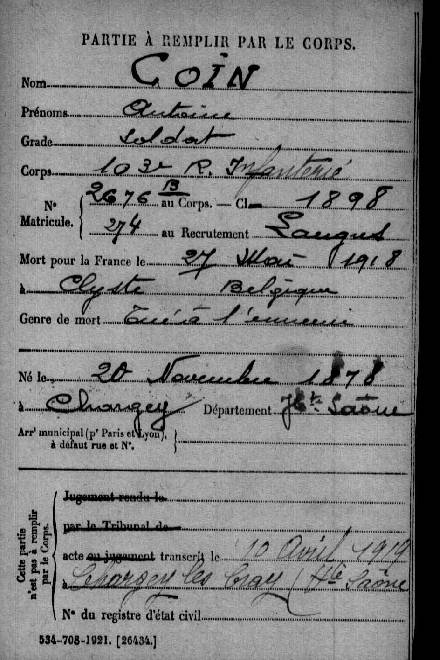 PARTIE À REMPLIR PAR LE CORPS.
Nom COÏN
Prénoms Antoine
Grade Soldat
Corps 103e R. Infanterie
N° Matricule. 2676 B au Corps. — Cl. 1898
274 au Recrutement Langres
Mort pour la France le 27 Mai 1918
à Clyste Belgique
Genre de mort Tué à l'ennemi
Né le 20 Novembre 1878
à Chargey Département Hte Saône
Arrt municipal (pr Paris et Lyon), à défaut rue et N°.
Cette partie n'est pas à remplir par le Corps.
Jugement rendu le
par le Tribunal de
acte ou jugement transcrit le 10 Avril 1919
à Chargey les Gray (Hte Saône
N° du registre d'état civil
534-708-1921. [26434.]